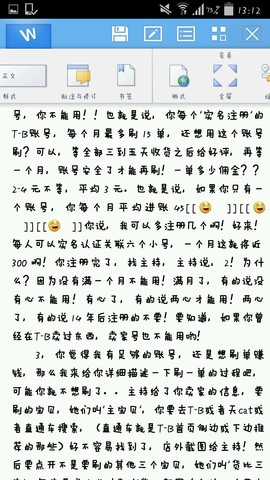 75%
13:12
查看
正文
样式
批注与修订
书签
版式
全屏
号，你不能用！！也就是说，你每个‘实名注册’的
T-B账号，每个月最多刷15单，还想用这个账号
刷？可以，等全部三到五天收货之后给好评，再等
一个月，账号安全了才能再刷！一单多少佣金？？
2-4元不等，平均3元。也就是说，如果你只有一
个账号，你每个月平均进账45[[😄 ]][[😄
]][[😄 ]]你说，我可以多注册几个吗！好来！
每人可以实名认证关联六个小号，一个月这就将近
300啊！你注册完了，找主持，主持说，2！为什
么？因为没有满一个月不能用！满月了，有的说没
有心不能用！有心了，有的说两心才能用！两心
了，有的说14年后注册的不要！要知道，如果你曾
经在T-B卖过东西，卖家号也不能用哟！
3，你觉得我有足够的账号，还是想刷单赚
钱，那么我来给你详细描述一下刷一单的过程吧，
可能你就不想刷了。。主持给了你卖家的信息，要
刷的宝贝，她们叫‘主宝贝’，你要去T-B或者天cat或
者直通车搜索，（直通车就是T-B首页侧边或下边推
荐的那些）好不容易找到了，店外截图给主持！然
后要点开不是要刷的其他三个宝贝，她们叫‘货比三